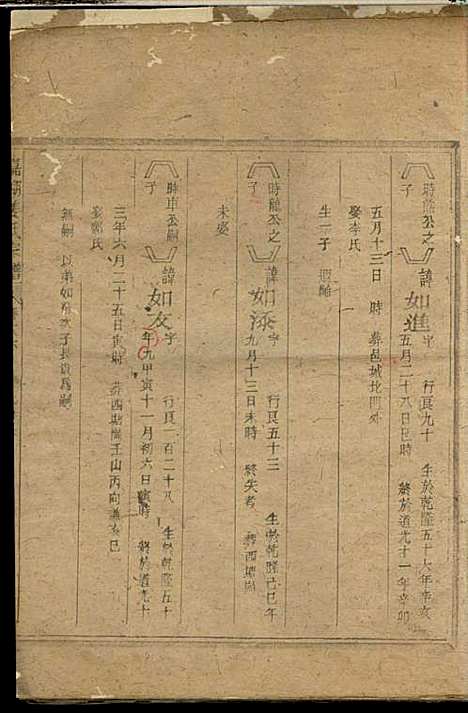 時龍公之子
諱如進字 行良九十 生於乾隆五十六年辛亥
五月二十八日巳時 終於道光十一年辛卯
五月十三日 時 葬邑城北門外
娶李氏
生一子
時龍公之子
諱如漆字 行良五十三 生於乾隆己巳年
九月十三日未時 終失考 葬西塘
未娶
時中公嗣子
諱如友字 行良一百二十八 生於乾隆五十
年九甲寅十一月初六日寅時 終於道光十
三年六月二十五日寅時 葬西塘 王山丙向 亥巳
娶鄭氏
無嗣 以弟如 次子長貴為嗣
氏宗譜